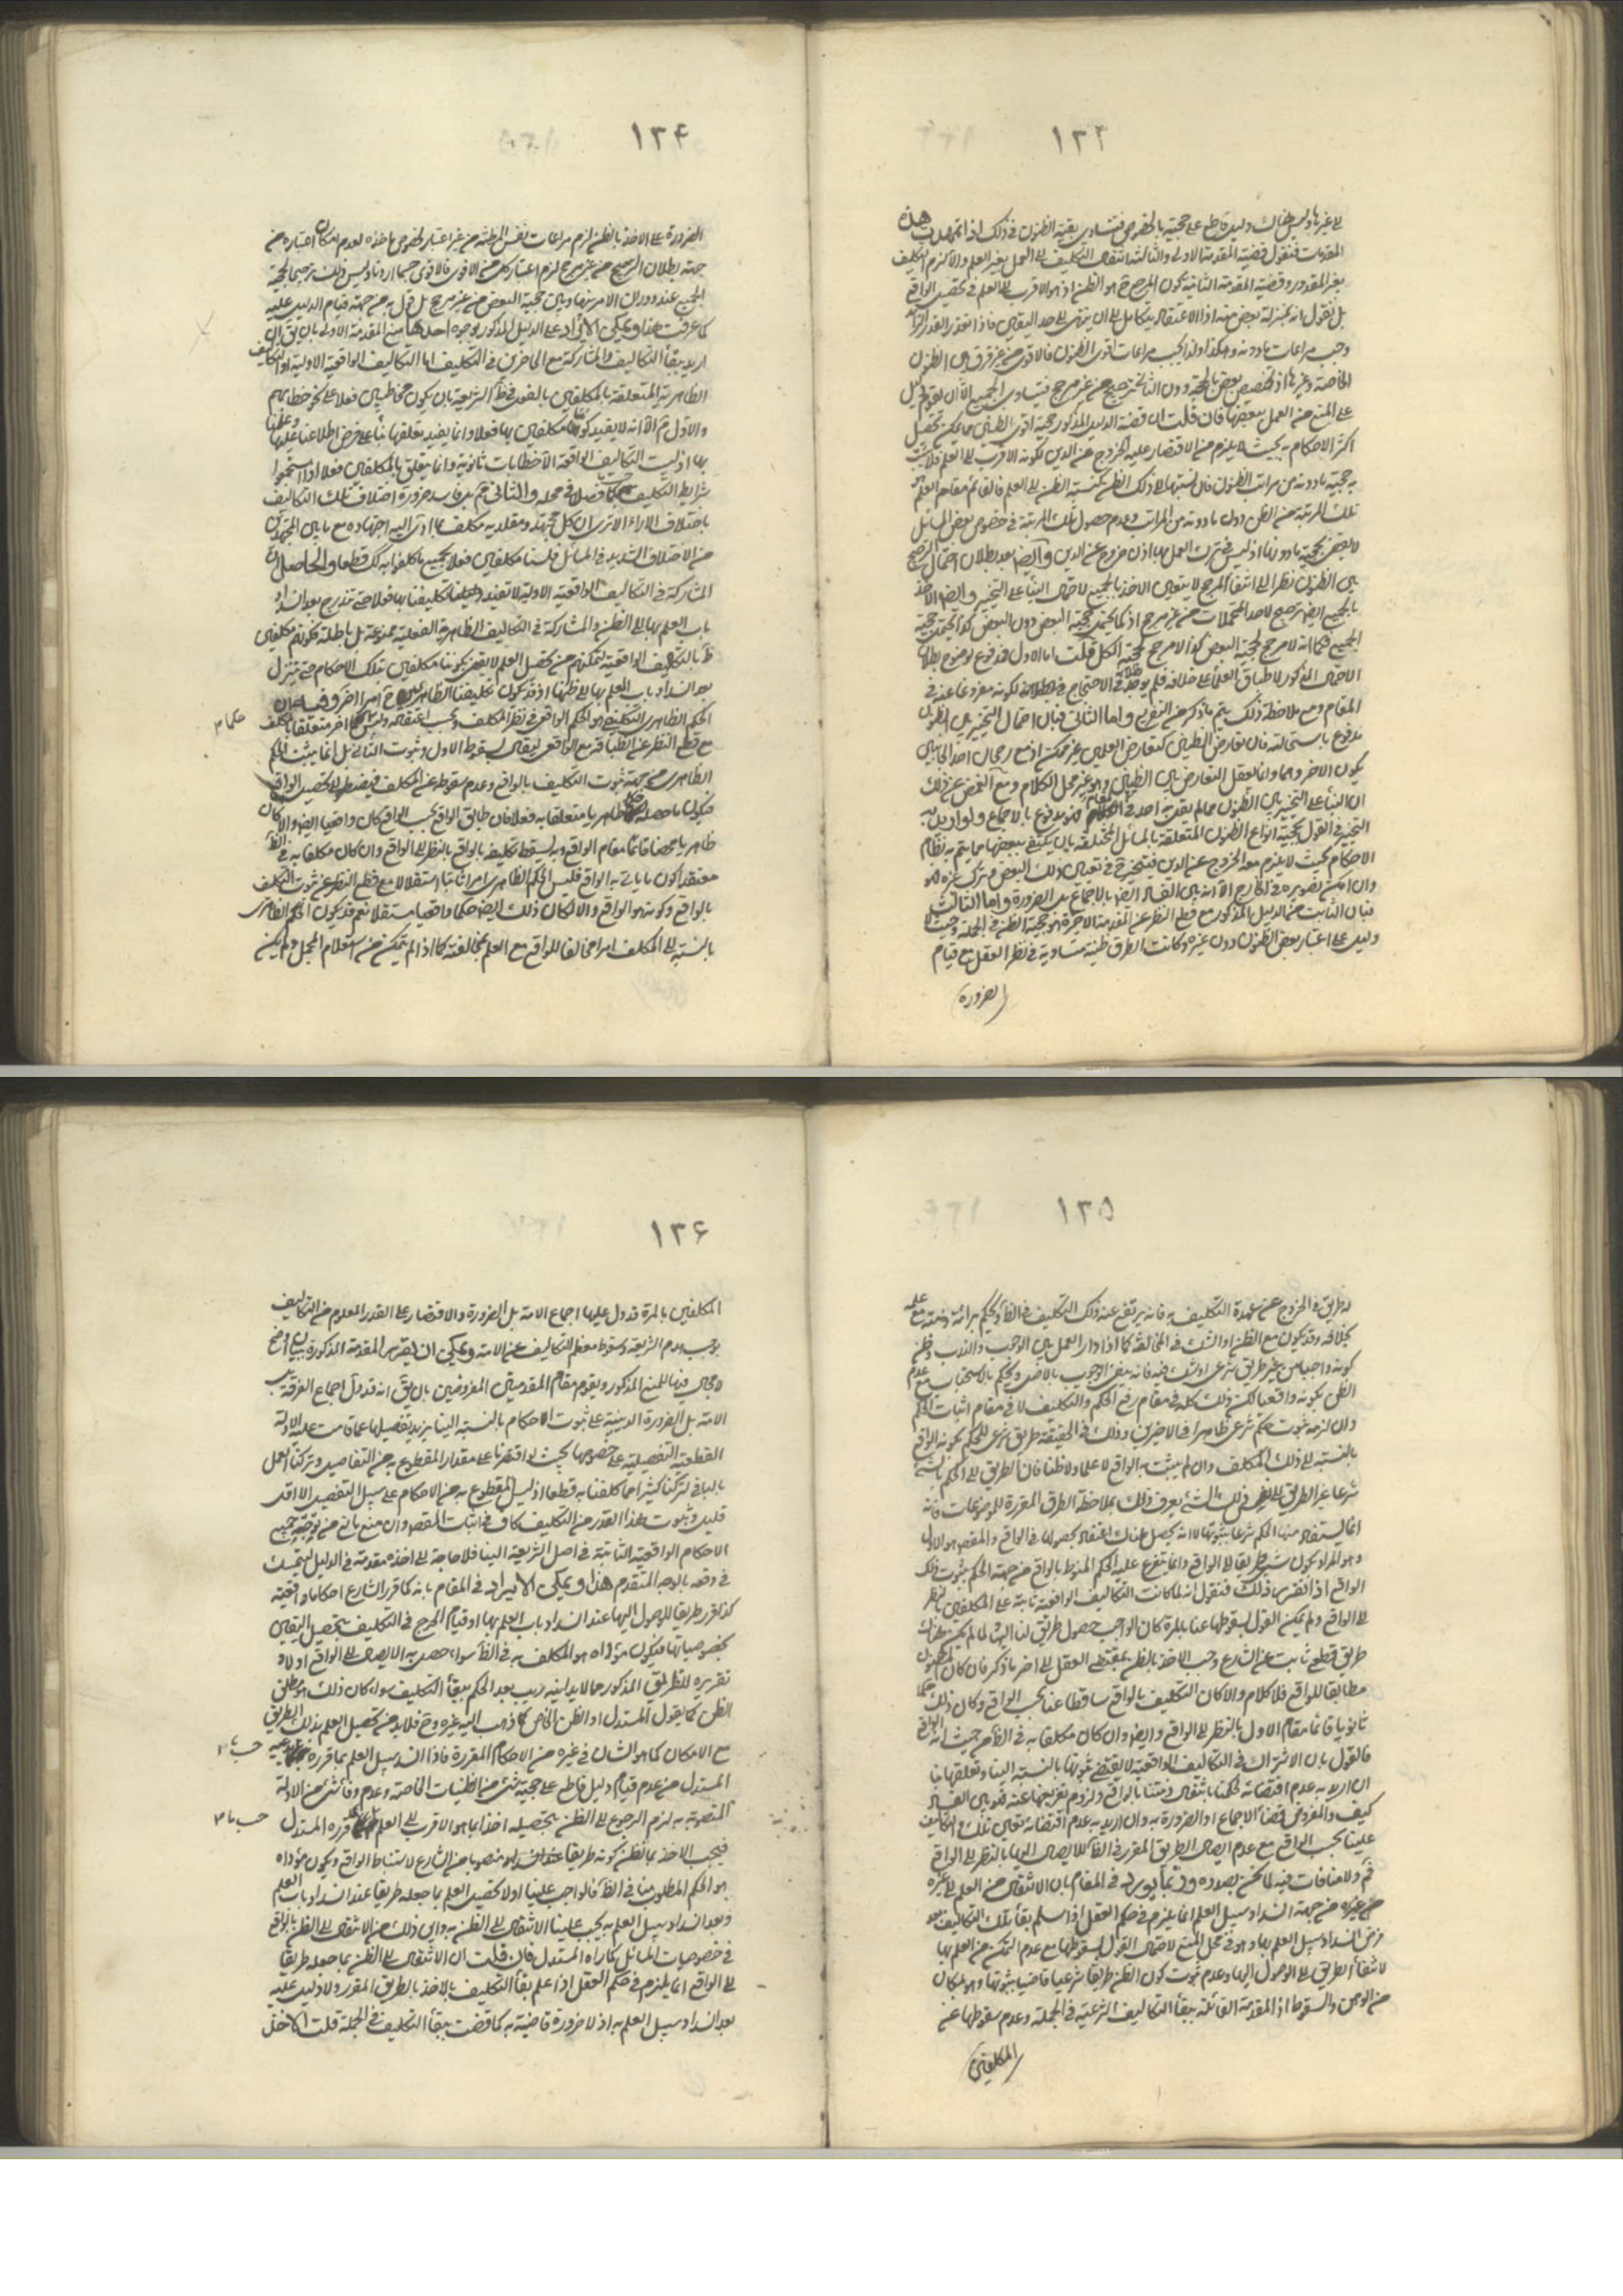 ١٣٣
المقدمات فنقول قضية المقدمة الاولى والثالثة انتقال التكليف الى العمل بغير العلم والا لزم التكليف
بغير المقدور وقضية المقدمة الثانية كون المرجع هو الظن اذ هو الاقرب الى العلم في تحصيل الواقع
بل نقول انه بمنزلة بعض منه اذ الاعتقاد يتكامل الى ان ينتهي الى حد اليقين فاذا تعذر القدر الزائد
وجب مراعات ما دونه وهكذا ولذا يجب مراعات اقوى الظنون فالاقوى من غير فرق بين الظنون
الخاصة وغيرها اذ تخصيص بعض بالحجية دون الباقي ترجيح من غير مرجح فيتساوى الجميع الا ان يقوم دليل
على المنع من العمل ببعضها فان قلت ان قضية الدليل المذكور حجية اقوى الظنون مما يمكن تحصيل
اكثر الاحكام به بحيث لا يلزم من الاقتصار عليه الخروج عن الدين لكونه الاقرب الى العلم فلا يثبت
به حجية ما دونه من مراتب الظنون فان نسبتها الى ذلك الظن كنسبة الظن الى العلم فالقائم مقام العلم هو
تلك المرتبة من الظن دون ما دونه من المراتب وعدم حصول تلك المرتبة في خصوص بعض المسائل
لا يقضي بحجية ما دونها اذ ليس في ترك العمل بها اذن خروج عن الدين وايضا بعد بطلان احتمال الترجيح
بين الظنون نظرا الى انتفاء المرجح لا يتعين الاخذ بالجميع لاحتمال البناء على التخيير وايضا الاخذ
بالجميع ايضا ترجيح لاحد المحتملات من غير مرجح اذ كما يحتمل حجية البعض دون البعض كذا يحتمل حجية
الجميع فكما انه لا مرجح لحجية البعض كذا لا مرجح لحجية الكل قلت اما الاول فمدفوع بوضوح بطلان
المقام ومع ملاحظة ذلك يتم ما ذكر من التقريب واما الثاني فبان احتمال التخيير بين الظنون
مدفوع باستحالته فان تعارض الظنين كتعارض العلمين غير ممكن اذ مع رجحان احد الجانبين
يكون الاخر وهما وانما يعقل التعارض بين الظنيين وهو غير محل الكلام ومع الغض عن ذلك
التخيير في القول بحجية انواع الظنون المتعلقة بالمسائل المختلفة بان يكتفي ببعضها مما يتم به نظام
الاحكام بحيث لا يلزم معه الخروج عن الدين فيتخير ح في تعيين ذلك البعض وترك غيره فهو
وان امكن تصويره في الخارج الا انه بين الفساد ايضا بالاجماع بل الضرورة واما الثالث
فبان الثابت من الدليل المذكور مع قطع النظر عن المقدمة الاخيرة هو حجية الظن في الجملة وحيث لا
دليل على اعتبار بعض الظنون دون غيره وكانت الطرق ظنية متساوية في نظر العقل مع قيام
الضرورة
١٣٤
الضرورة على الاخذ بالظن لزم مراعات نفس المظنة من غير اعتبار لخصوص ماخذه لعدم امكان اعتباره من
جهة بطلان الترجيح من غير مرجح لزم اعتبار كل من الاقوى فالاقوى حسبما اردنا وليس ذلك ترجيحا لحجية
الجميع عند دوران الامر بينها وبين حجية البعض من غير مرجح بل قول به من جهة قيام الدليل عليه
كما عرفت هذا ويمكن الايراد على الدليل المذكور بوجوه احدها منع المقدمة الاولى بان يق ان
اريد ببقاء التكاليف والمشاركة مع الحاضرين في التكليف اما التكاليف الواقعية الاولية او التكاليف
الظاهرية المتعلقة بالمكلفين بالفعل في ظ الشريعة بان يكون مخاطبين فعلا على نحو خطابهم
بها اذ ليست التكاليف الواقعية الا خطابات ثانوية وانما يتعلق بالمكلفين فعلا اذا استجمعوا
شرايط التكليف كما فصل في محله والثاني مم بل فاسد ضرورة اختلاف تلك التكاليف
باختلاف الاراء الا ترى ان كل مجتهد ومقلديه مكلف بما ادى اليه اجتهاده مع ما بين المجتهدين
من الاختلاف الشديد في المسائل فلسنا مكلفين فعلا بجميع ما كلفوا به كك قطعا والحاصل ان
باب العلم بها الى الظن والمشاركة في التكاليف الظاهرية الفعلية ممنوعة بل باطلة فكونهم مكلفين
ظ بالتكاليف الواقعية لتمكنهم من تحصيل العلم لا يقضي بكوننا مكلفين بتلك الاحكام حتى يتنزل
حكما م
مع قطع النظر عن انطباقه مع الواقعي ليقال بسقوط الاول وثبوت الثاني بل انما يثبت الحكم
الظاهري من جهة ثبوت التكليف بالواقع وعدم سقوطه عن المكلف فيضطر الى تحصيل الواقع
ظاهريا محضا قائما مقام الواقع وبه يسقط تكليفه بالواقع بالنظر الى الواقع وان كان مكلفا به في الظ
معتقدا كون ما ياتي به الواقع فليس الحكم الظاهري امرا ثابتا استقلالا مع قطع النظر عن ثبوت التكليف
بالواقع وكونه هو الواقع والا لكان ذلك ايضا حكما واقعيا مستقلا نعم قد يكون الحكم الظاهري
بالنسبة الى المكلف امرا مخالفا للواقع مع العلم بمخالفته كما اذا لم يتمكن من استعلام المجمل ولم يكن
١٣٥
له طريق في الخروج عن عهدة التكليف به فانه يرتفع عنه ذلك التكليف في الظ ويحكم ببرائة ذمته مع علمه
بخلافه وقد يكون مع الظن او الشك في المخالفة كما اذا دار العمل بين الوجوب والندب وظن
كونه واجبا من غير طريق شرعي او شك فيه فانه ينفي الوجوب بالاصل ويحكم بالاستحباب مع عدم
الظن بكونه واقعا لكن ذلك كله في مقام رفع الحكم والتكليف لا في مقام اثبات الحكم
وان لزمه ثبوت حكم شرعي ظاهرا في الاخيرين وذلك في الحقيقة طريق شرعي للحكم بكونه الواقع
بالنسبة الى ذلك المكلف وان لم يثبت به الواقع لا علما ولا ظنا فان الطريق الى الحكم بالشيء
شرعا غير الطريق الى نفس ذلك الشيء يعرف ذلك بملاحظة الطرق المقررة للموضوعات فانه
انما يستفاد منها الحكم شرعا بثبوتها لا انه يحصل هناك اعتقاد بحصولها في الواقع والمقصود هو الاول
وهو المراد بكون شيء طريقا الى الواقع وانما تفرع عليه الحكم المنوط بالواقع من جهة الحكم بثبوت ذلك
الواقع اذا تقرر ذلك فنقول انه لما كانت التكاليف الواقعية ثابتة على المكلفين بالنظر
الى الواقع ولم يمكن القول بسقوطها عنا بالمرة كان الواجب حصول طريق لنا اليها ولما لم يكن هناك
طريق قطعي ثابت عن الشارع وجب الاخذ بالظن بمقتضى العقل الى اخر ما ذكر فان كان المظنون
مطابقا للواقع فلا كلام والا كان التكليف بالواقع ساقطا عنا بحسب الواقع وكان ذلك حكما
ثانويا قائما مقام الاول بالنظر الى الواقع وايضا وان كان مكلفا به في الظ من حيث انه الواقع
فالقول بان الاشتراك في التكاليف الواقعية لا يقتضي ثبوتها بالنسبة الينا وتعلقها بنا
ان اريد به عدم اقتضائه للحكم باشتغال ذمتنا بالواقع ولزوم تفريغها عنه فهو بين الفساد
كيف والمفروض قضاء الاجماع او الضرورة به وان اريد به عدم اقتضائه تعين تلك في التكليف
علينا بحسب الواقع مع عدم ايصال الطريق المقرر في الظ للايصال اليها بالنظر الى الواقع
فمم ولا منافات فيه لما نحن بصدده وربما يورد في المقام بان الانتقال من العلم الى غيره
فرض انسداد سبيل العلم بها وهو في محل المنع لاحتمال القول بسقوطها مع عدم التمكن من العلم بها
لانتفاء الطريق الى الوصول اليها وعدم ثبوت كون الظن طريقا شرعيا قاضيا بثبوتها وهو بمكان
من الوهن والسقوط اذ المقدمة القائلة ببقاء التكاليف الشرعية في الجملة وعدم سقوطها عن
المكلفين
١٣٦
المكلفين بالمرة قد دل عليها اجماع الامة بل الضرورة والاقتصار على القدر المعلوم من التكاليف
يوجب هدم الشريعة وسقوط معظم التكاليف عن الامة ويمكن ان يقرر المقدمة المذكورة ببيان اوضح
لا مجال فيها للمنع المذكور ويقوم مقام المقدمتين المفروضتين بان يق انه قد دل اجماع الفرقة بل
الامة بل الضرورة الدينية على ثبوت الاحكام بالنسبة الينا يزيد تفصيلها عما قامت عليه الادلة
القطعية التفصيلية على خصوصها بحيث لو اقتصرنا على مقدار المقطوع به من التفاصيل وتركنا العمل
بالباقي لتركنا كثيرا مما كلفنا به قطعا اذ ليس المقطوع به من الاحكام على سبيل التفصيل الا اقل
قليل وثبوت هذا القدر من التكليف كاف في اثبات المقصود وان منع مانع من توجه جميع
الاحكام الواقعية الثابتة في اصل الشريعة الينا فلا حاجة الى اخذه مقدمة في الدليل ليتمسك
في دفعه بالوجه المتقدم هذا ويمكن الايراد في المقام بانه كما قرر الشارع احكاما واقعية
كذا قرر طريقا للوصول اليها عند انسداد باب العلم بها او قيام الحرج في التكليف بتحصيل اليقين
بخصوصياتها فيكون مؤداه هو المكلف به في الظ سواء حصل به الايصال الى الواقع او لا و
تقريره للطريق المذكور مما لا بد انيه ريب بعد الحكم ببقاء التكليف سواء كان ذلك هو مطلق
الظن كما يقول المستدل او الظن الخاص كما ذهب اليه غيره وح فلا بد من تحصيل العلم بذلك الطريق
مع الامكان كما هو الشان في غيره من الاحكام المقررة فاذا انسد سبيل العلم بما قرره
المستدل من عدم قيام دليل قاطع على حجية شيء من الظنيات الخاصة وعدم وفاء شيء من الادلة
المنصوبة به لزم الرجوع الى الظن بتحصيله اخذا بما هو الاقرب الى العلم قرره المستدل
هو الحكم المطلوب منا في الظ فالواجب علينا اولا تحصيل العلم بما جعله طريقا عند انسداد باب العلم
وبعد انسداد سبيل العلم به يجب علينا الانتقال الى الظن به واين ذلك من الانتقال الى الظن بالواقع
في خصوصيات المسائل كما راه المستدل فان قلت ان الانتقال الى الظن بما جعله طريقا
الى الواقع انما يلزم في حكم العقل اذا علم بقاء التكليف بالاخذ بالطريق المقرر ولا دليل عليه
بعد انسداد سبيل العلم به اذ لا ضرورة قاضية به كما قضت ببقاء التكليف في الجملة قلت